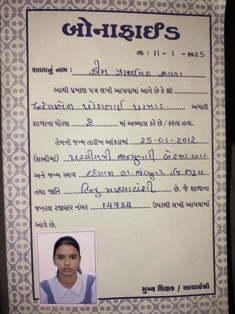 બોનાફાઈડ
તા. : 11-1-2025
શાળાનું નામ : પ્રાથમિક શાળા
આથી પ્રમાણ પત્ર લખી આપવામાં આવે છે કે શ્રી
પરમાર અમારી
શાળાના ધોરણ 8 માં અભ્યાસ કરે છે / કરતા હતા.
તેમની જન્મ તારીખ આંકડામાં 25-01-2012
(શબ્દોમાં) પચ્ચીસમી જાન્યુઆરી બે હજાર બાર
અને જન્મ સ્થળ
તથા જાતિ હિન્દુ છે. જે શાળાના
જનરલ રજીસ્ટર નંબર 14784 ઉપરથી લખી આપવામાં
આવે છે.
મુખ્ય શિક્ષક / આચાર્યશ્રી